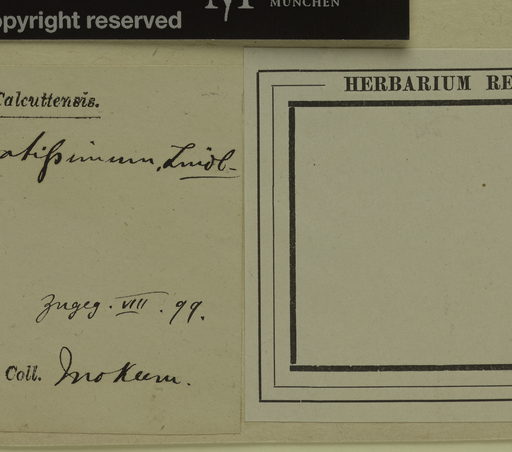 opyright reserved
MÜNCHEN
Calcuttensis.
atissimum, Lindl.
zugeg. VIII. 99.
Coll. Mokeem.
HERBARIUM RE